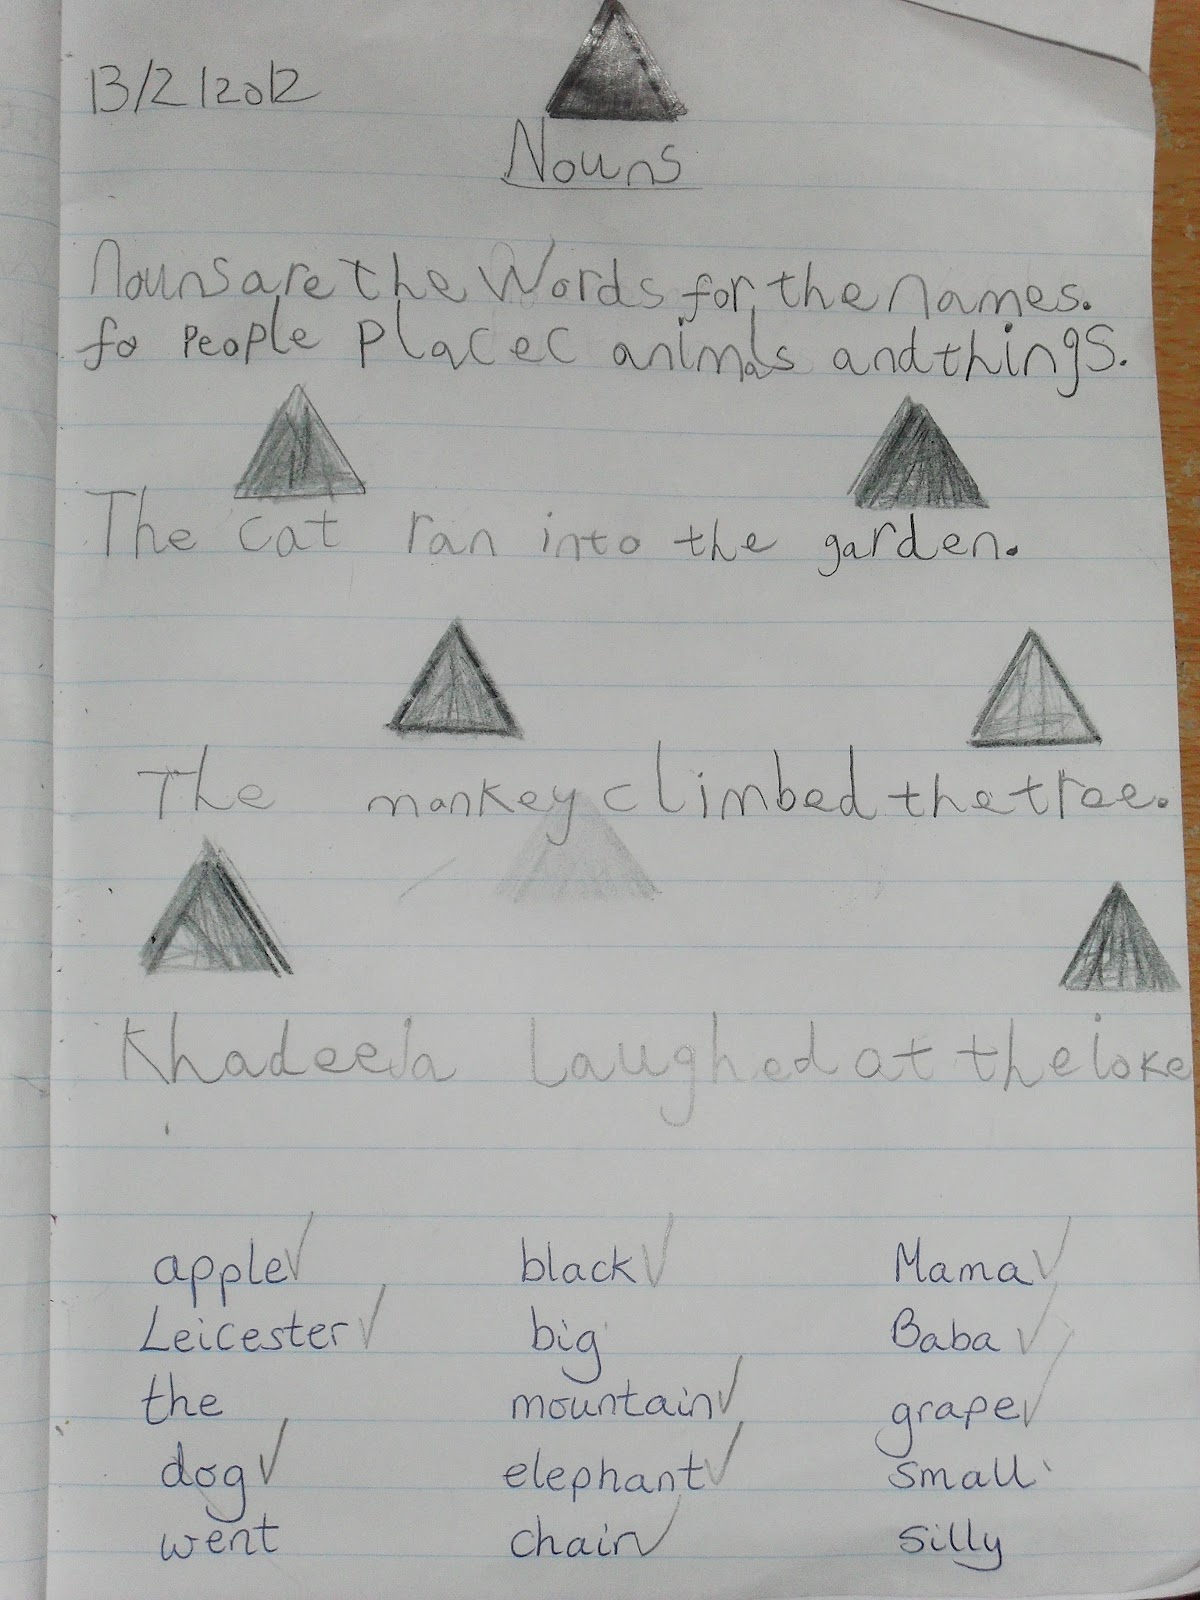 13/2/2012
Nouns
Nouns are the Words for the names.
fo People Placec animals and things.
The cat ran into the garden.
The mankey climbed the tree.
Khadeeja laughed at the joke
apple✓ black✓ Mama✓
Leicester✓ big Baba✓
the mountain✓ grape✓
dog✓ elephant✓ small
went chair✓ silly